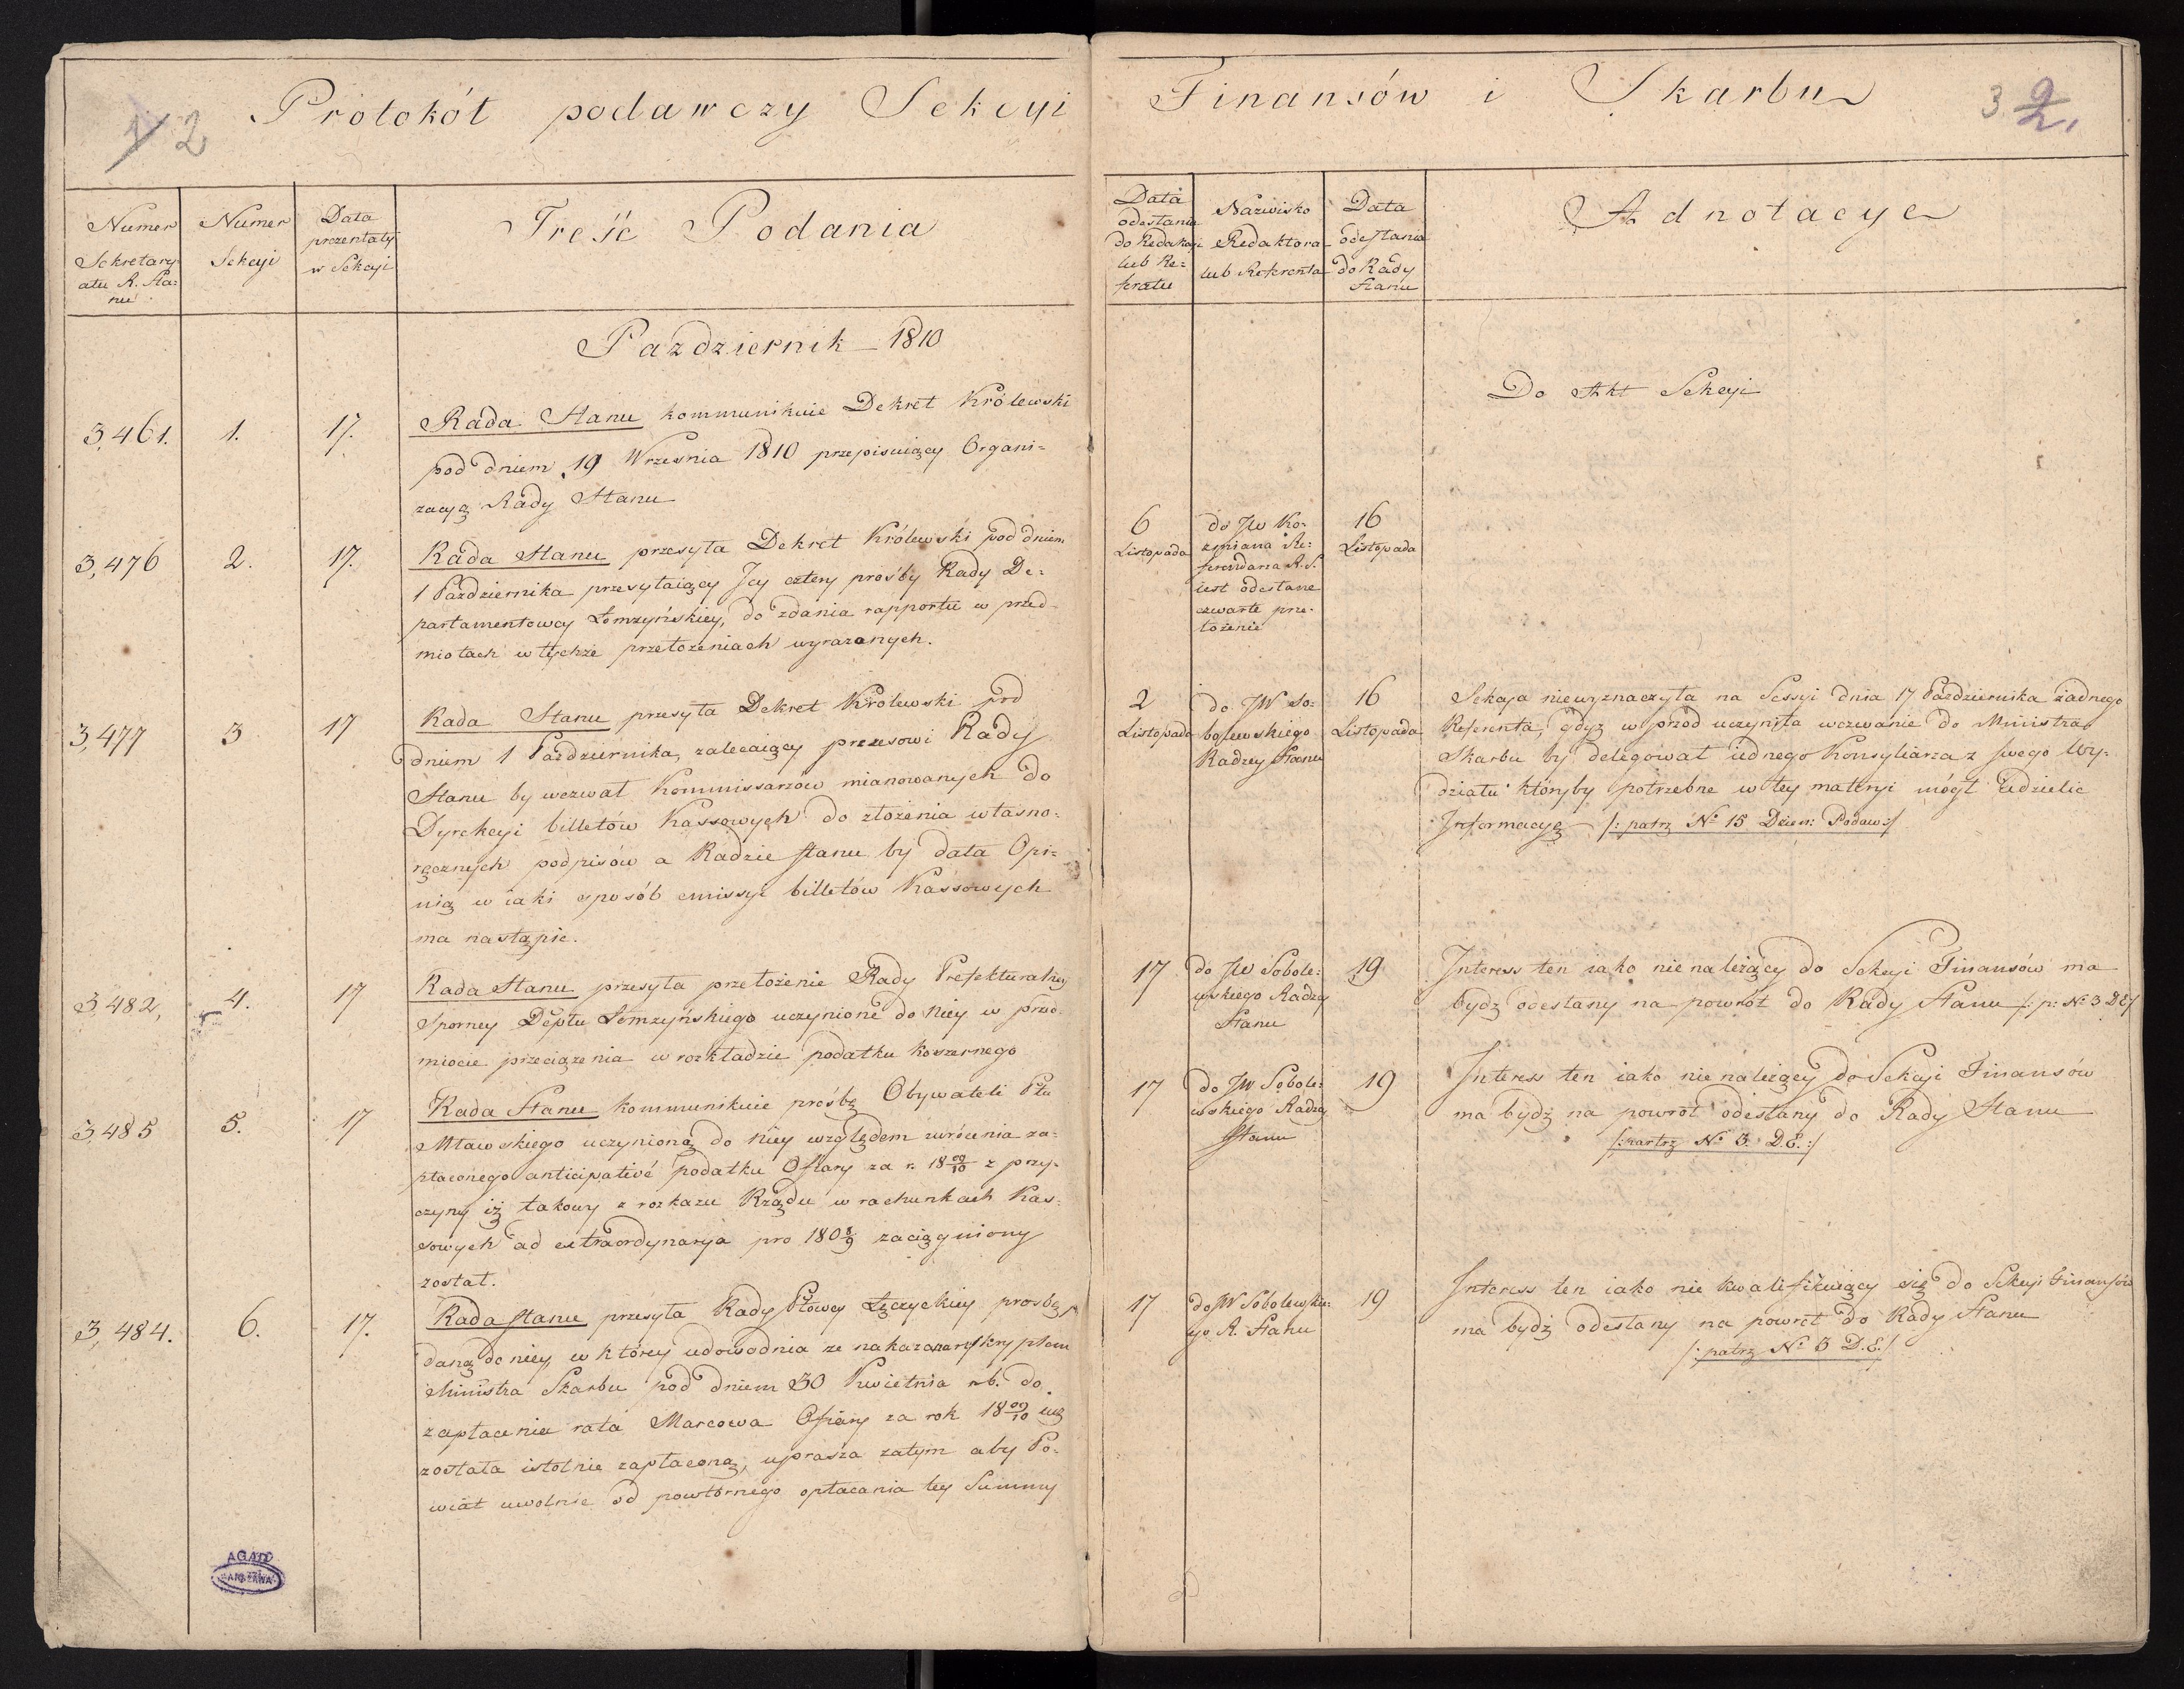 1/ 2
Protokół podawczy Sekcyi
Numer Sekretary-
atu R. Sta:
nu
Numer
Sekcyi
Data
prezentaty
w Sekcyi
Treść Podania
Pazdziernik 1810
3,461. 1. 17.
Rada Stanu kommunikuie Dekret Królewski
pod dniem 19 Wrzesnia 1810 przepisuiący Organi=
zacyą Rady Stanu
3,476 2. 17.
Rada Stanu przesyła Dekret Królewski pod dniem
1 Pazdziernika przesyłaiący Jey cztery prośby Rady De=
partamentowey Łomzyńskiey, do zdania rapportu w przed-
miotach w tychże przełożeniach wyrazonych.
3,477 3 17
Rada Stanu przesyła Dekret Królewski pod
dniem 1 Pazdziernika, zalecaiący prezesowi Rady
Stanu by wezwał Kommissarzow mianowanych do
Dyrekcyi billetów Kassowych do złożenia własno=
ręcznych podpisów a Radzie stanu by dała Opi=
nią w iaki sposób emissyi billetów Kassowych
ma nastąpić.
3,482, 4. 17
Rada Stanu przesyła przełożenie Rady Prefekturalney
Sporney Deptu Łomzyńskiego uczynione do Niey w przed-
miocie przeciążenia w rozkładzie podatku koszernego
3,485 5. 17
Rada Stanu kommunikuie prośbę Obywateli Ptu
Mławskiego uczynioną do Niey względem zwrócenia za=
płaconego anticipativé podatku Ofiary za r. 18 09/10 z przy=
czyny iż takowy z rozkazu Rządu w rachunkach Kas=
sowych ad extraordynarya pro 180 8/9 zaciągniony
został.
3,484. 6. 17.
Rada stanu przesyła Rady Ptowey Łęczyckiey prosbę p
daną do niey, w którey udowodnia ze nakazana reskryptem
Ministra Skarbu pod dniem 30 Kwietnia r.b. do
zapłacenia rata Marcowa Ofiary za rok 18 09/10 iuż
została istotnie zapłaconą, uprasza zatym aby Po=
wiat uwolnić od powtórnego opłacania tey Summy
AGAD
WARSZAWA
Finansów i Skarbu
3. 2.
Data
odesłania
do Redakcyi
lub Re=
feratu
Nazwisko
Redaktora
lub Referenta
Data
odesłania
do Rady
Stanu
Adnotacye
Do Akt Sekcyi
6
Listopada
do JW Ko=
zmiana Re=
ferendarza R.S.
iest odesłane
czwarte prze=
łożenie
16
Listopada
2
Listopada
do JW So=
bolewskiego
Radzcy Stanu
16
Listopada
Sekcya niewyznaczyła na Sessyi dnia 17 Pazdziernika żadnego
Referenta, gdyż w przód uczyniła wezwanie do Ministra
Skarbu by delegował iednego Konsyliarza z swego Wy=
działu któryby potrzebne w tey materyi mógł udzielić
Informacye /: patrz No 15 Dzien: Podaw:/
17
do JW Sobole=
wskiego Radzcy
Stanu
19
Interess ten iako nienależący do Sekcyi Finansów ma
bydź odesłany na powrót do Rady Stanu /: p: No 3 D E/
17
do JW Sobole=
wskiego Radzcy
Stanu
19
Interess ten iako nie należący do Sekcyi Finansów
ma bydź na powrót odesłany do Rady Stanu
/: partrz No 3. D.E.:/
17
do JW Sobolewskie=
go R. Stanu
19
Interess ten iako nie kwalifikuiący się do Sekcyi Finansów
ma bydź odesłany na powrót do Rady Stanu
/: patrz No 3 D.E./